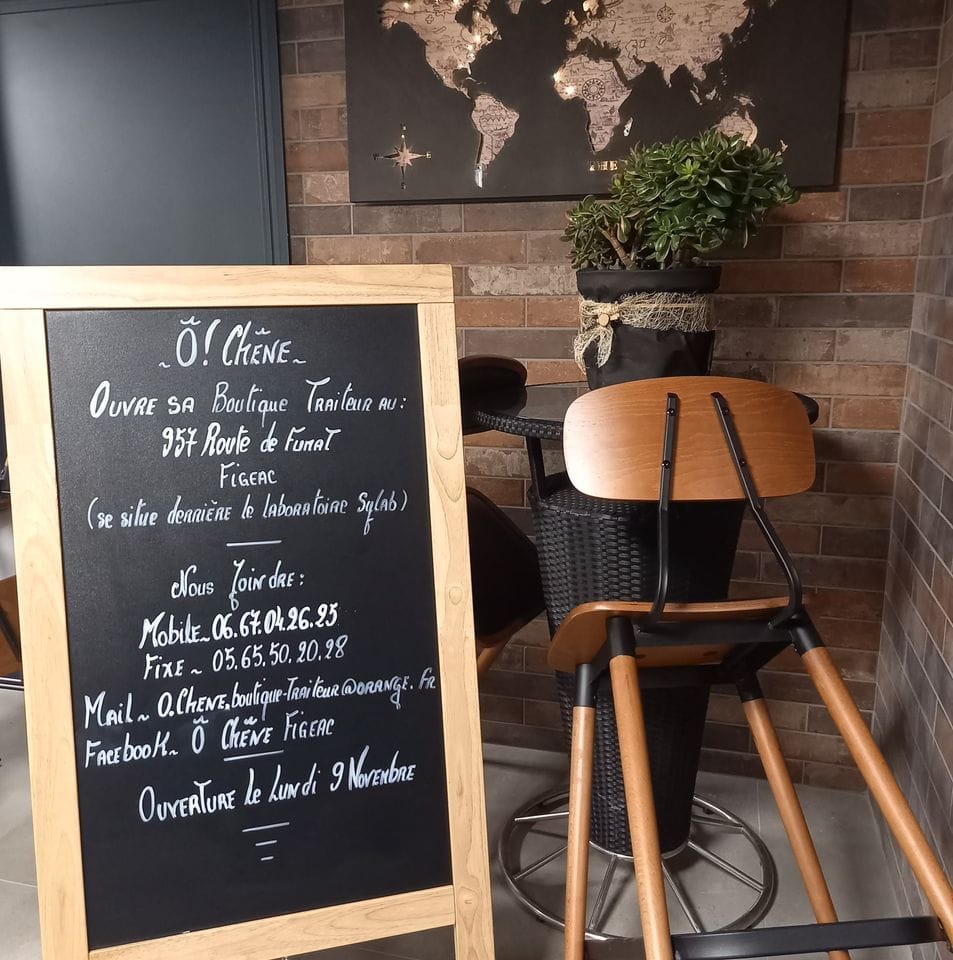 ~Ô! Chêne~
Ouvre sa Boutique Traiteur au:
957 Route de Fumat
Figeac
(se situe derrière le laboratoire Sylab)
Nous Joindre:
Mobile~06.67.04.26.25
Fixe~05.65.50.20.28
Mail~O.Chene.boutique-Traiteur@orange.Fr
Facebook~Ô Chêne Figeac
Ouverture le Lundi 9 Novembre